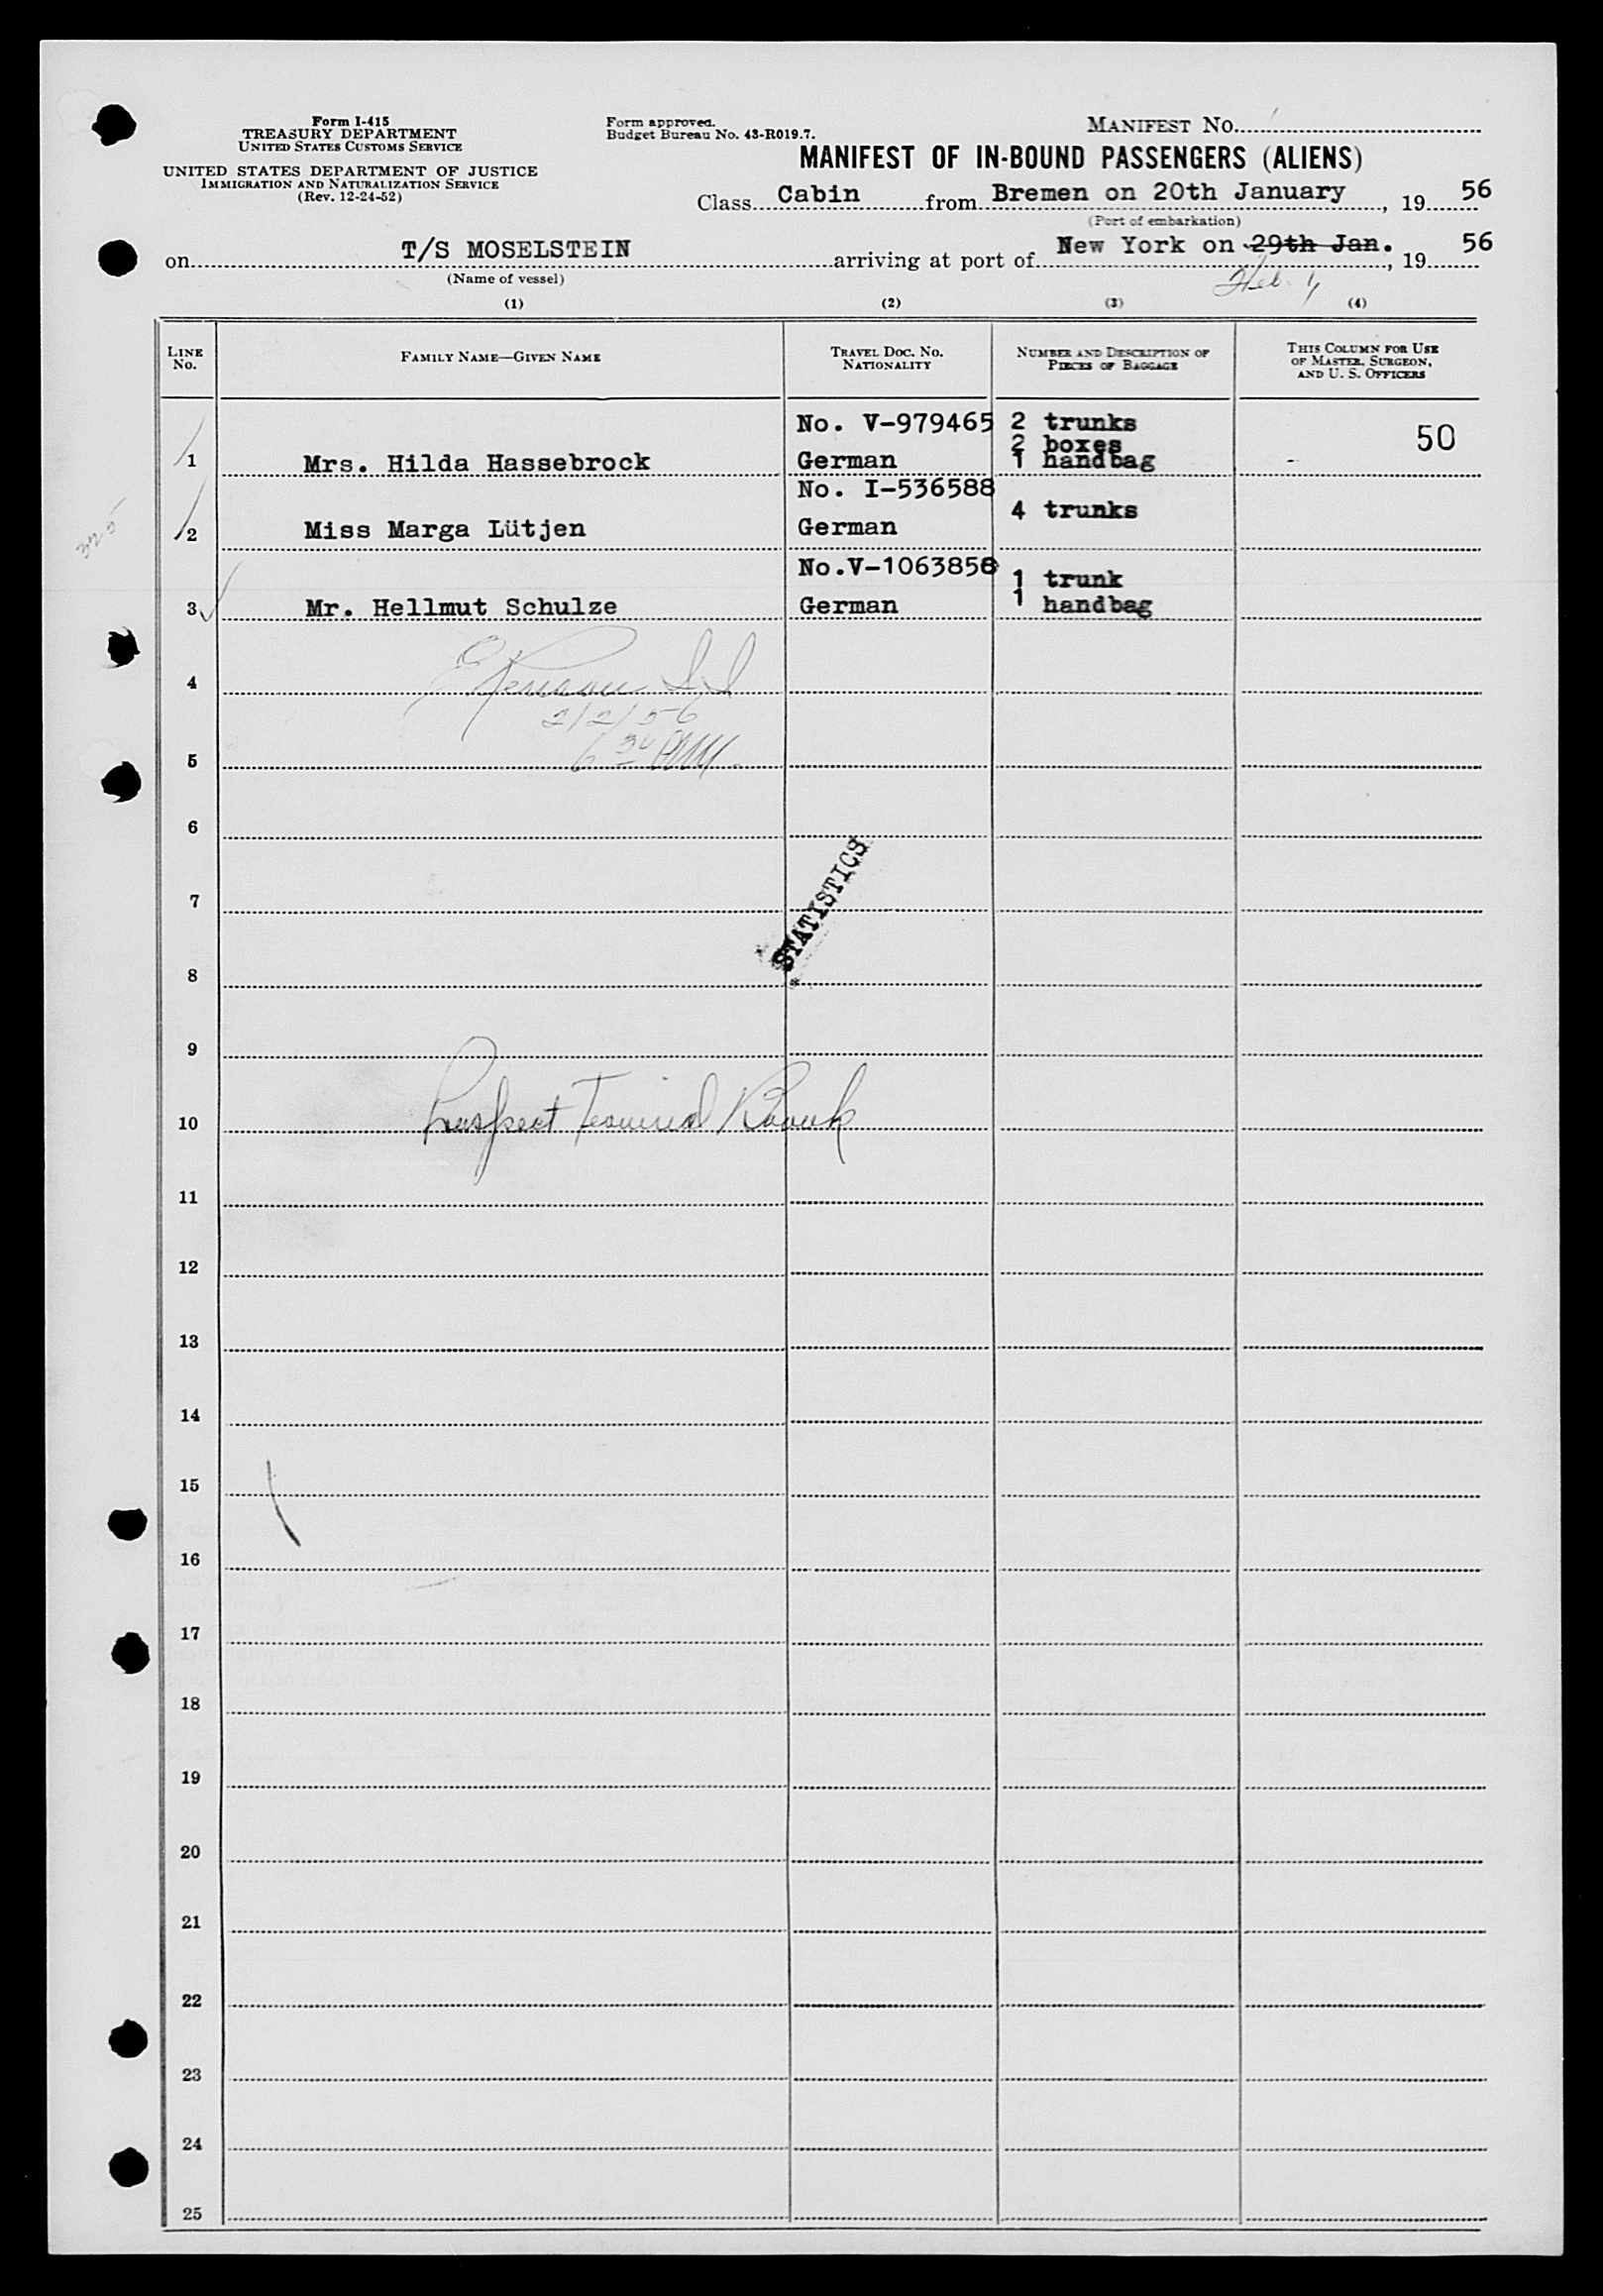 Form I-415
TREASURY DEPARTMENT
UNITED STATES CUSTOMS SERVICE
UNITED STATES DEPARTMENT OF JUSTICE
IMMIGRATION AND NATURALIZATION SERVICE
(Rev. 12-24-52)
Form approved.
Budget Bureau No. 43-R019.7.
MANIFEST NO.
MANIFEST OF IN-BOUND PASSENGERS (ALIENS)
Class Cabin from Bremen on 20th January, 19 56
(Port of embarkation)
on T/S MOSELSTEIN arriving at port of New York on 29th Jan., 19 56
(Name of vessel)
Feb. 1
(1) (2) (3) (4)
LINE NO. FAMILY NAME—GIVEN NAME TRAVEL DOC. NO. NATIONALITY NUMBER AND DESCRIPTION OF PIECES OF BAGGAGE THIS COLUMN FOR USE OF MASTER, SURGEON, AND U. S. OFFICERS
No. V-979465 2 trunks
2 boxes
50
1 Mrs. Hilda Hassebrock German 1 handbag
No. I-536588 4 trunks
2 Miss Marga Lütjen German
325
No.V-1063856 1 trunk
3 Mr. Hellmut Schulze German 1 handbag
4
2/2/56
6 30 PM
5
6
STATISTICS
7
8
9
10 Terminal
11
12
13
14
15
16
17
18
19
20
21
22
23
24
25